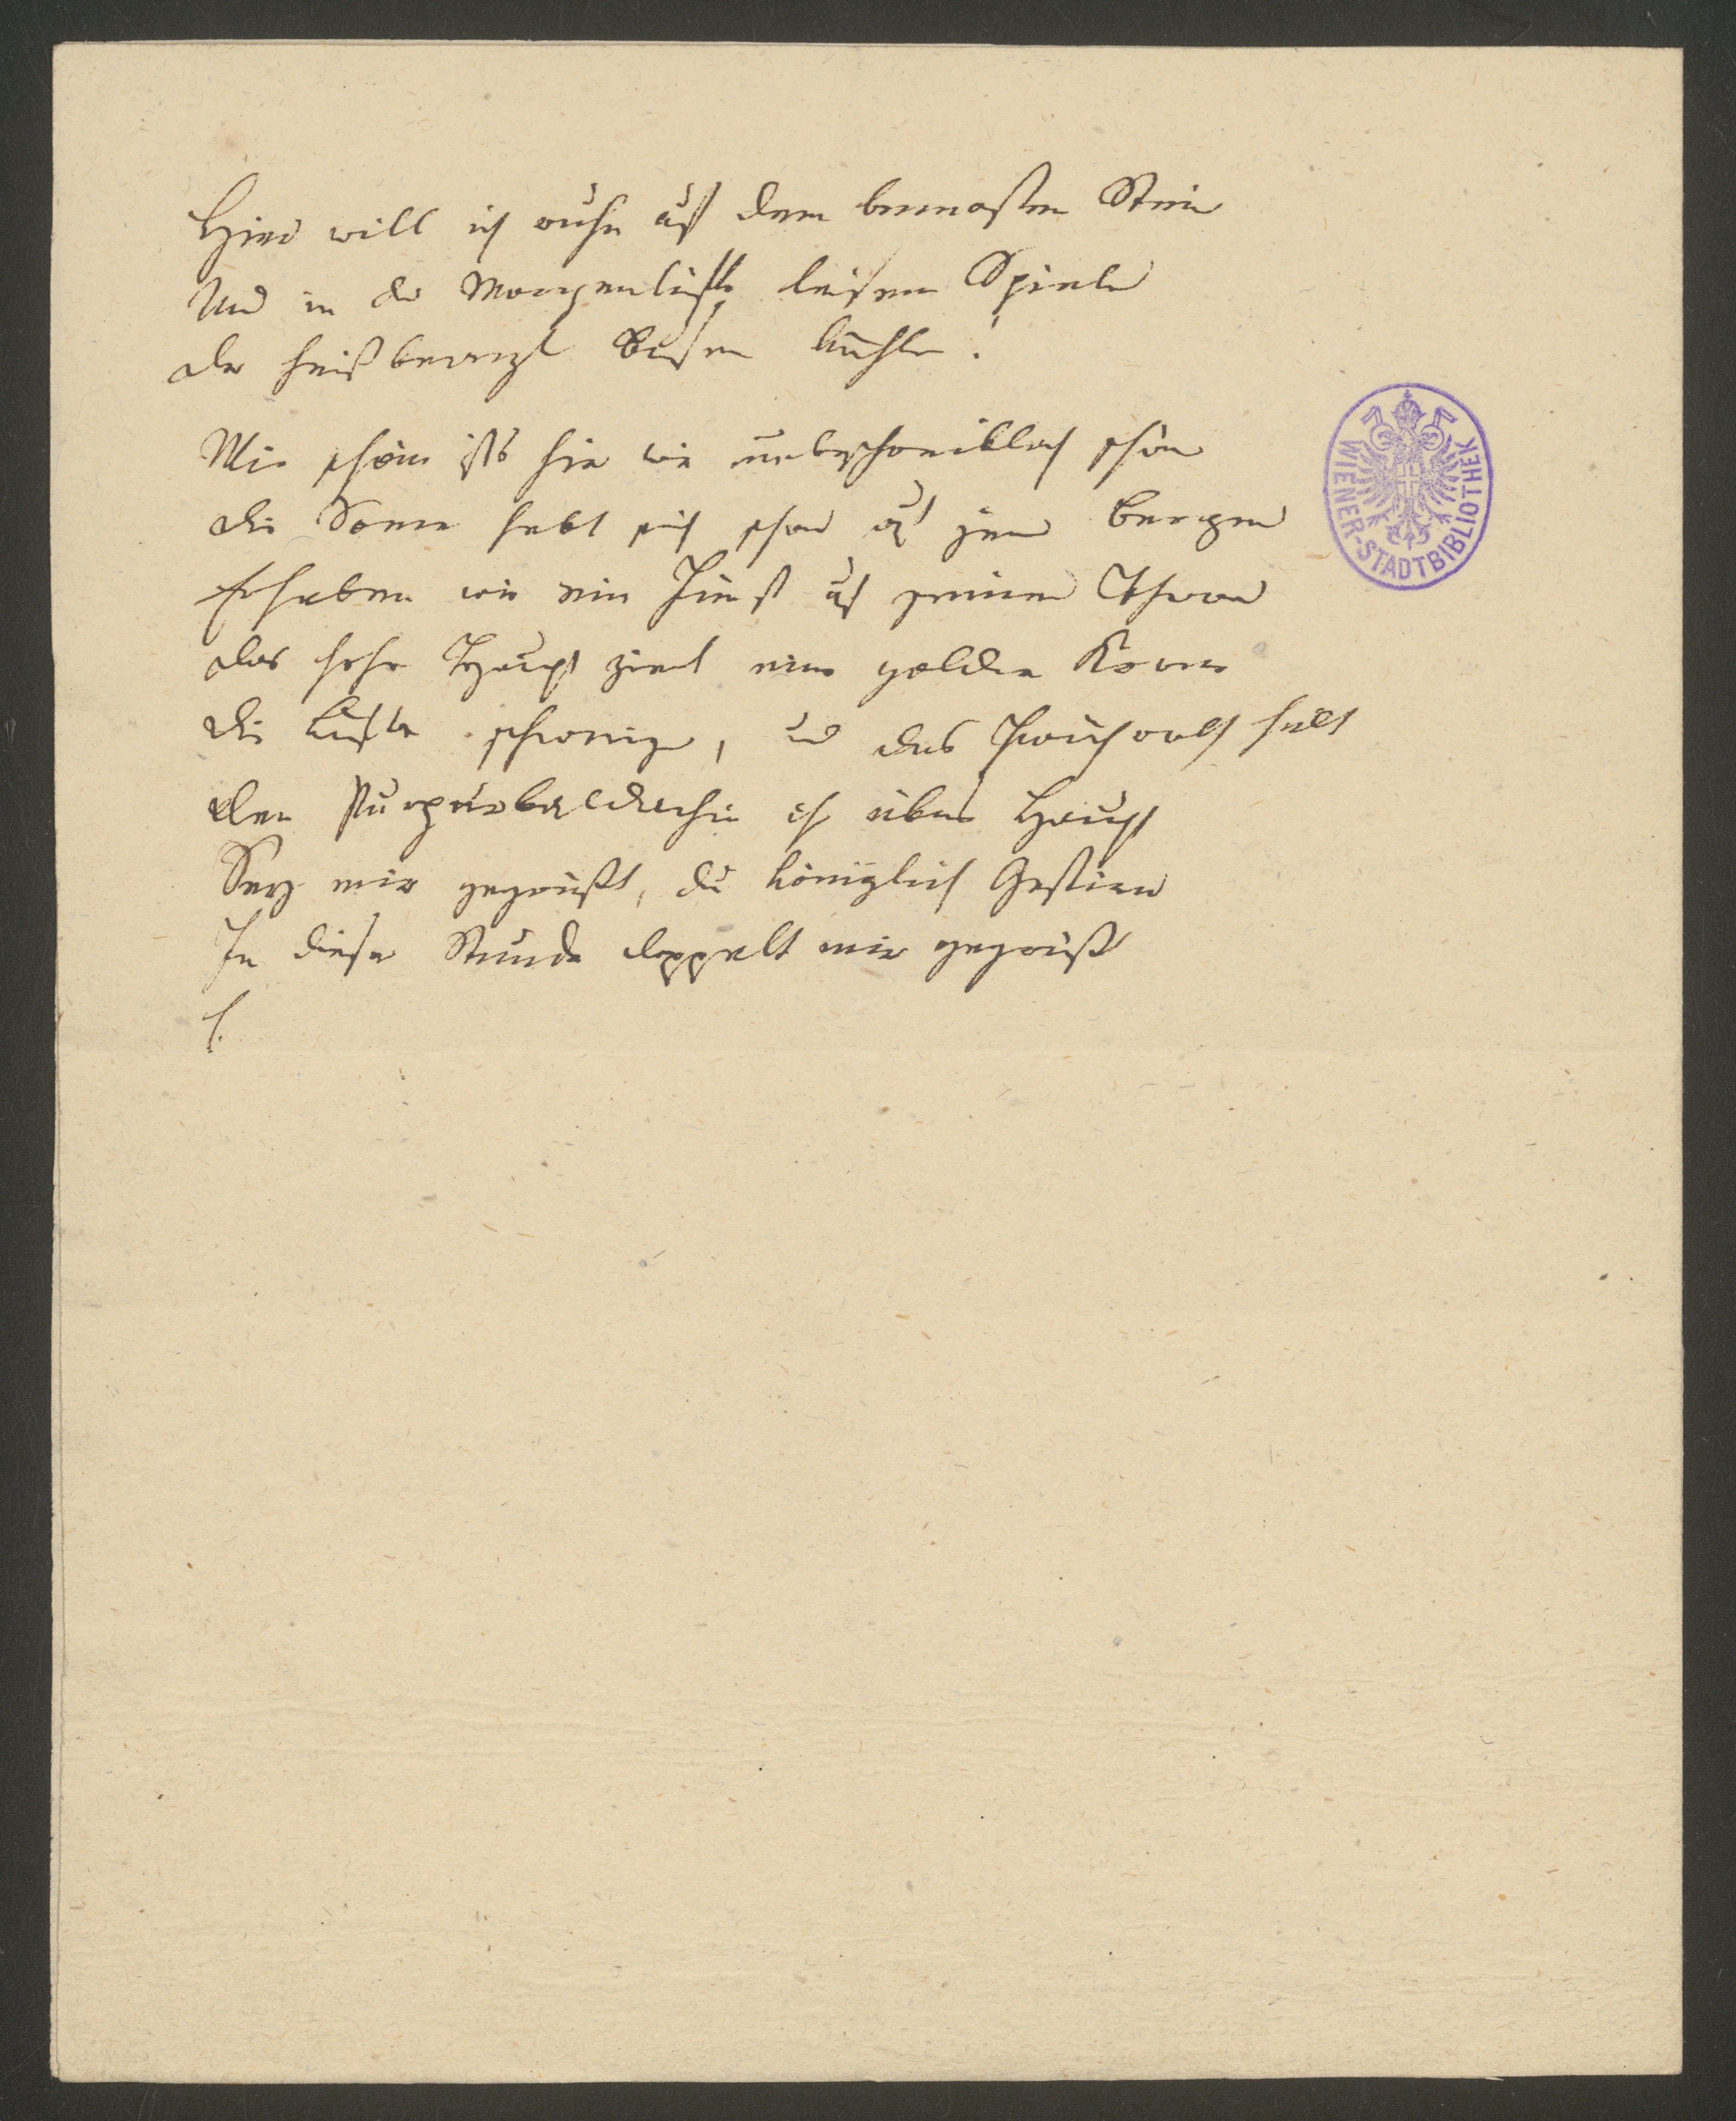 Hier will ich ruhn auf dem bemoosten Stein
Und in der Morgenlüfte leisem Spiele
der heißbewegt Busen kühlen!
Wie schön ists hier wie unbeschreiblich schön
die Sonne hebt sich schon auf jenen Bergen
Erhaben wie ein Fürst auf seinem Thron
das hohe Haupt ziert eine goldne Krone
die Lüfte schweigen, und das Frühroth hält
den Purpurbaldachin ihr übers Haupt
Sey mir gegrüßt, du königlich Gestirn
In dieser Stunde doppelt mir gegrüßt
WIENER-STADTBIBLIOTHEK